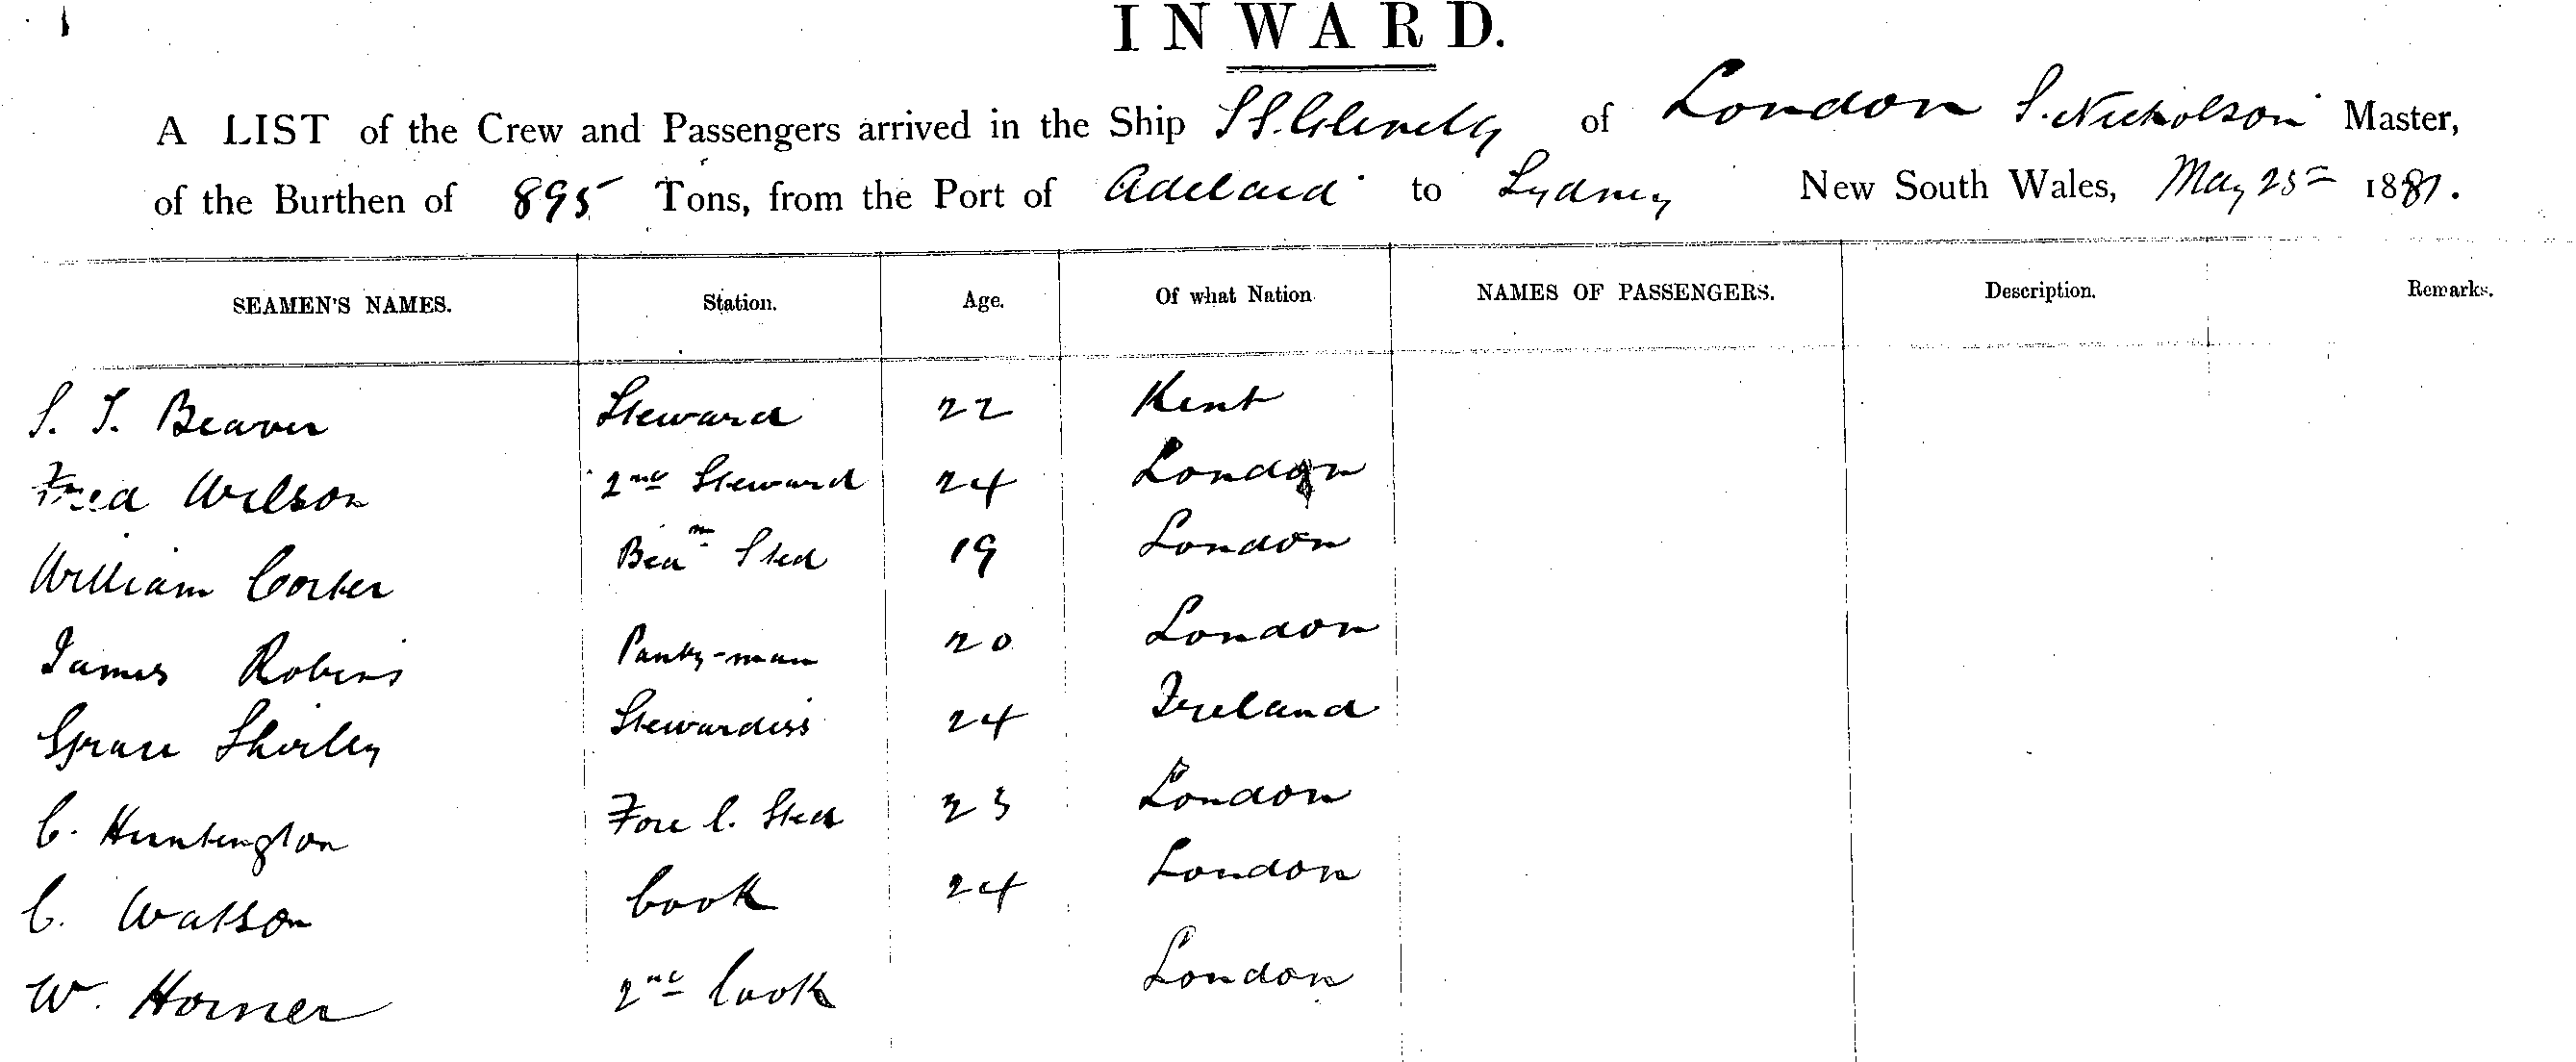 INWARD.
A LIST of the Crew and Passengers arrived in the Ship S.S. Glenelg of London S. Nicholson Master,
of the Burthen of 895 Tons, from the Port of Adelaid to Sydney New South Wales, May 25th 1881.
SEAMEN'S NAMES. Station. Age. Of what Nation NAMES OF PASSENGERS. Description. Remarks.
S. T. Beaver Steward 22 Kent
Fred Wilson 2nd Steward 24 London
William Corker Bedm Sted 19 London
James Robins Pantry-man 20 London
Grace Shirley Stewardess 24 Ireland
C. Huntington Fore C. Sted 23 London
C. Watson Cook 24 London
W. Horner 2nd Cook London